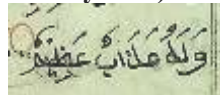 وَلَهُ عَذَابٌ عَظِيمٌ